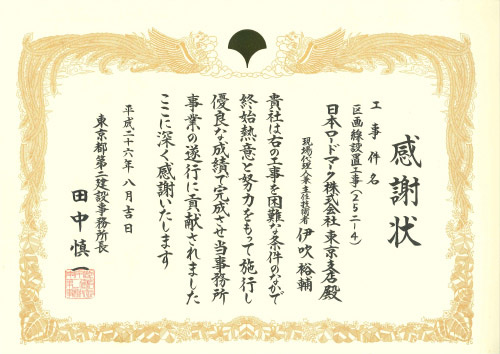 感謝状
工事件名
区画線設置工事(25二-4)
日本ロードマーク株式会社 東京支店 殿
現場代理人兼主任技術者 伊吹裕輔
貴社は右の工事を困難な条件のなかで
終始熱意と努力をもって施行し
優良な成績で完成させ当事務所
事業の遂行に貢献されました
ここに深く感謝いたします
平成二十六年八月吉日
東京都第二建設事務所長
田中慎一